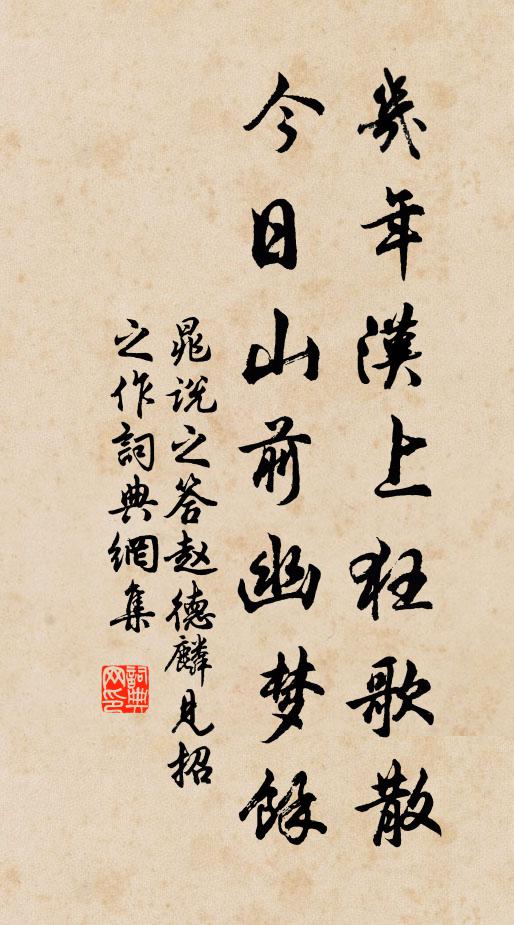 幾年漢上狂歌散
今日山前幽梦餘
晁説之答赵德麟見招
之作詞典網集
詞典
网印